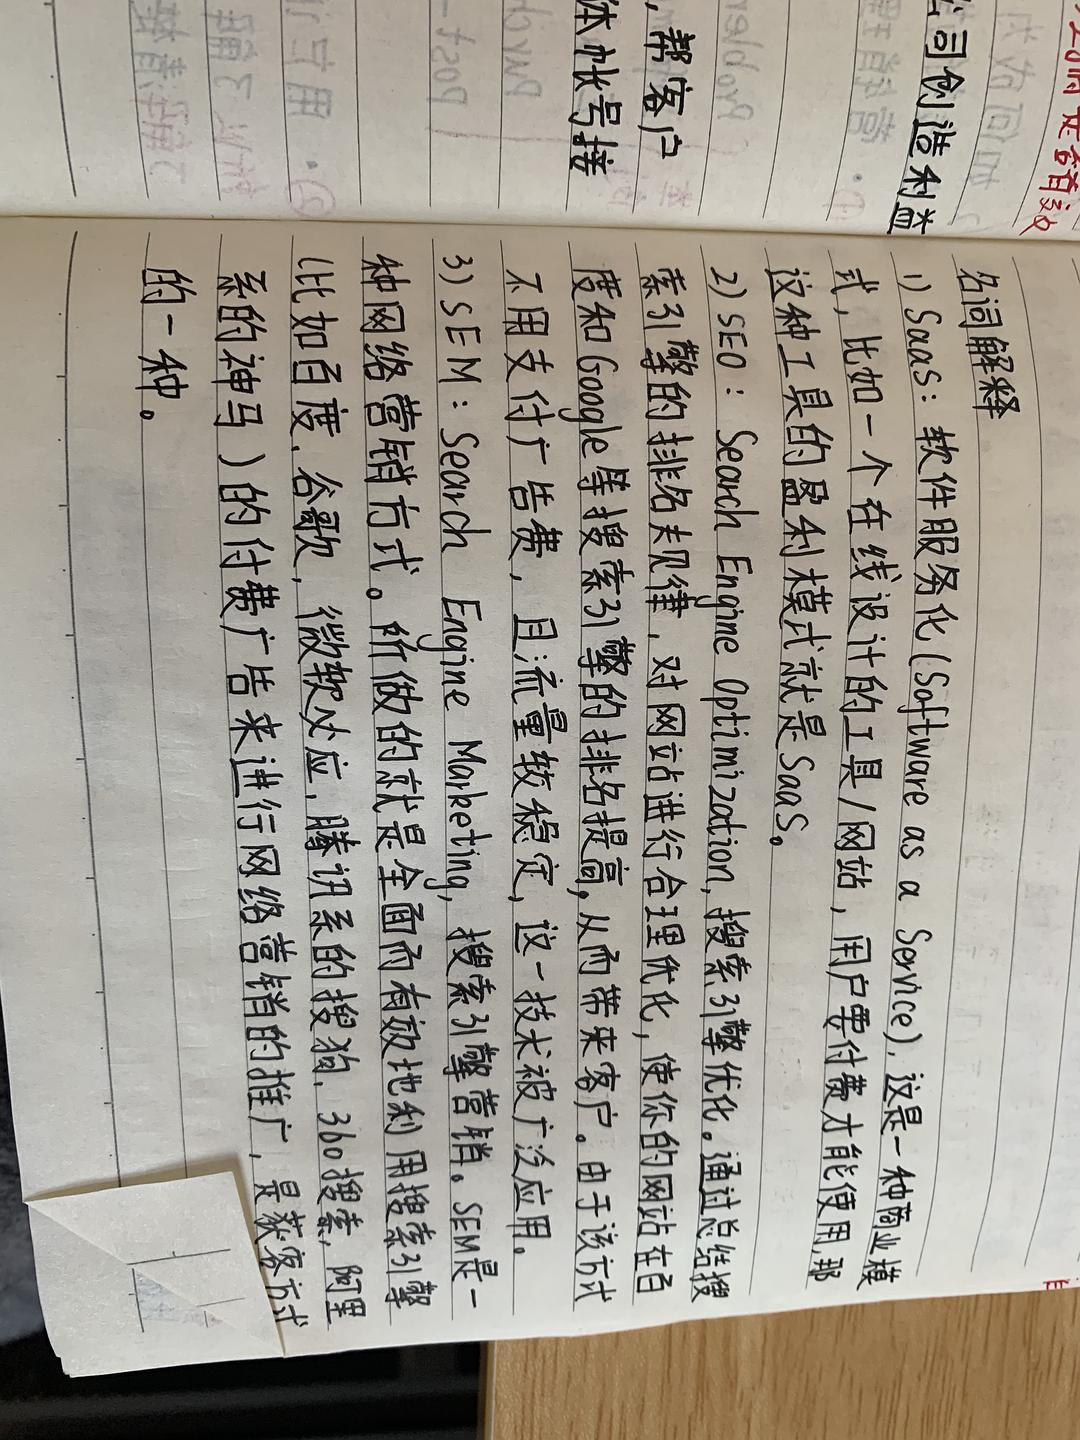 是否有效
公司创造利益
，帮客户
体帐号接
名词解释
1) SaaS：软件服务化(Software as a Service)，这是一种商业模
式，比如一个在线设计的工具/网站，用户要付费才能使用，那
这种工具的盈利模式就是SaaS。
2) SEO：Search Engine Optimization，搜索引擎优化。通过总结搜
索引擎的排名规律，对网站进行合理优化，使你的网站在百
度和Google等搜索引擎的排名提高，从而带来客户。由于该方式
不用支付广告费，且流量较稳定，这一技术被广泛应用。
3) SEM：Search Engine Marketing，搜索引擎营销。SEM是一
种网络营销方式。所做的就是全面而有效地利用搜索引擎
(比如百度、谷歌，微软必应，腾讯系的搜狗，360搜索，阿里
系的神马)的付费广告来进行网络营销的推广，是获客方式
的一种。